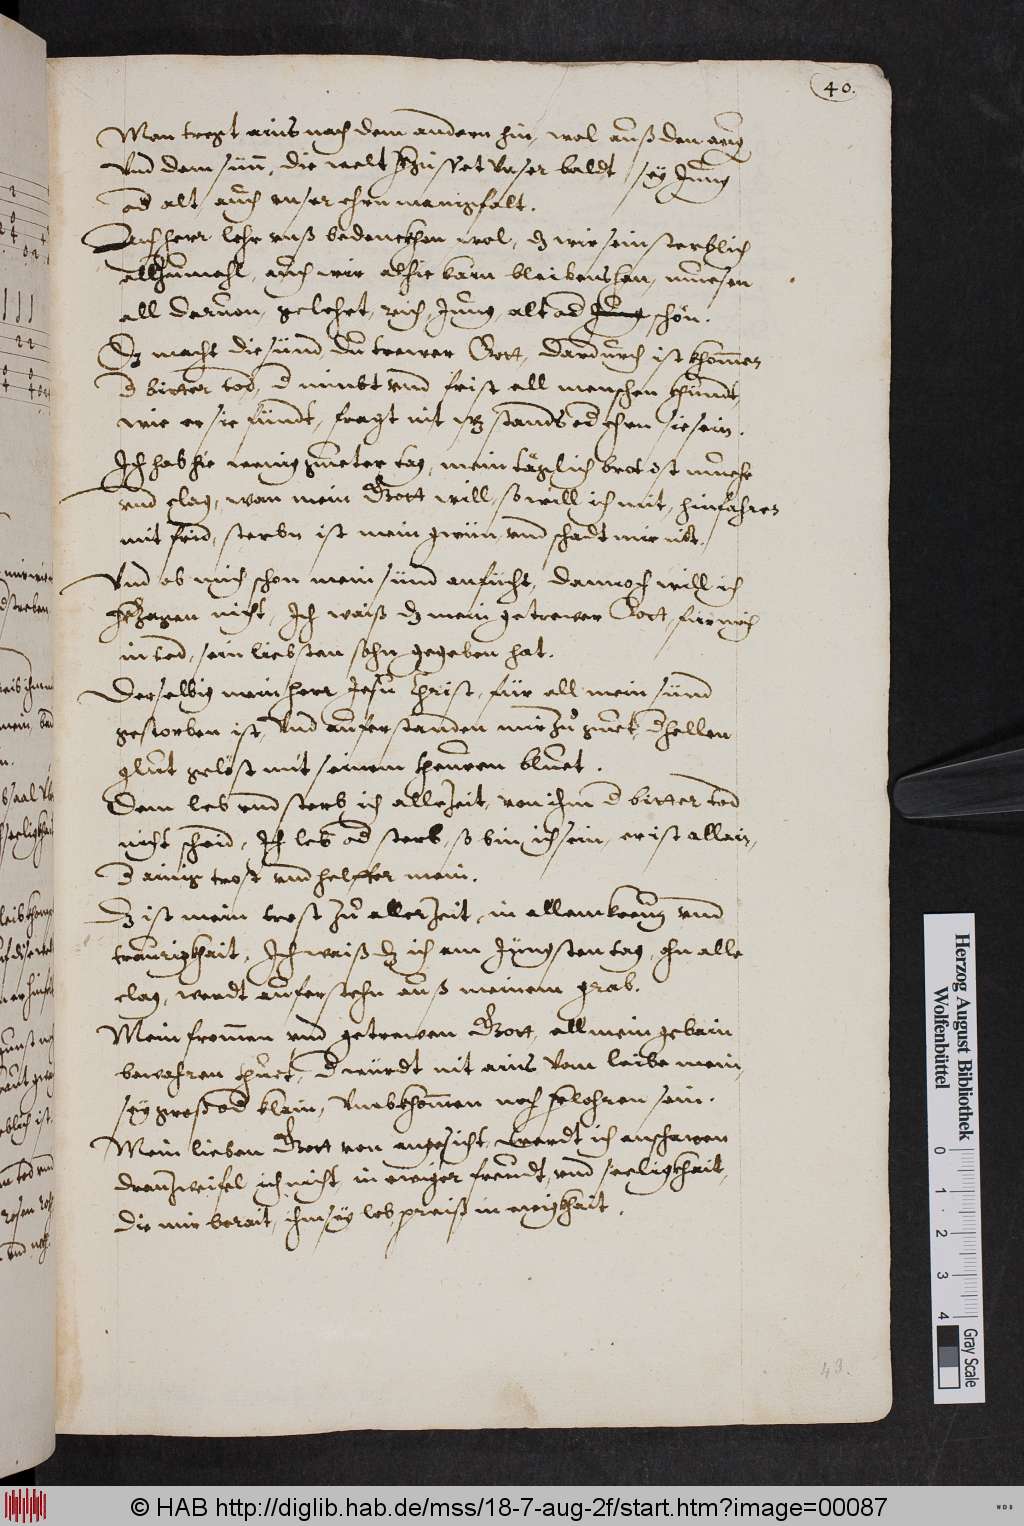 40.
Man tregt ains nach dem andern hin, wol auß den aug
Und dem sünn, die welt vergisset unser baldt, sey Jung
od alt auch unser ehrn manigfalt.
Ach herr lehr unß bedenckhen wol, dz wir sein sterblich
allzumahl, auch wir alhie kain bleibens han, muessen
all darvon, gelehrt, reich, Jung, alt od schön.
Dz macht die sünd du trewer Gott, dardurch ist khommen
d bitter tod, d nimbt und frist all menschen khündt,
wie er sie fündt, fragt nit wz stands od ehrn sie sein.
Ich hab hie wenig gueter tag, mein täglich brot ist muehe
und clag, wan mein Gott will, so will ich mit, hinfahren
mit frid, sterbn ist mein gwin und schadt mir nit.
Und ob mich schon mein sünd anficht, dannoch will ich
verzagen nicht, Ich waiß dz mein getrewer Gott, für mich
in tod, sein liebsten sohn gegeben hat.
Derselbig mein herr Jesu Christ, für all mein sünd
gestorben ist, Und auferstanden mir zu guet, d hellen
gluet gelöst mit seinem theuren bluet.
Dem leb und sterb ich alle Zeit, von ihm d bitter tod
nicht schaid, Ich leb od sterb, so bin ich sein, er ist allain,
d ainig trost und helffer mein.
Dz ist mein trost zu aller Zeit, in allem kreutz und
traurigkhait, Ich waiß dz ich am Jüngsten tag, ohn alle
clag, werdt auferstehn auß meinem grab.
Mein frommen und getrewen Gott, all mein gebain
bewahren thuet, d würdt nit ains vom leibe mein,
sey groß od klein, umbkhommen noch verlohren sein.
Mein lieben Gott von angesicht, werdt ich anschawen
dran zweifel ich nicht, in ewiger freudt, und seeligkhait,
die mir berait, ihm sey lob preiß in ewigkhait.
43.
Herzog August Bibliothek
Wolfenbüttel
0 1 2 3 4
Gray Scale
© HAB http://diglib.hab.de/mss/18-7-aug-2f/start.htm?image=00087